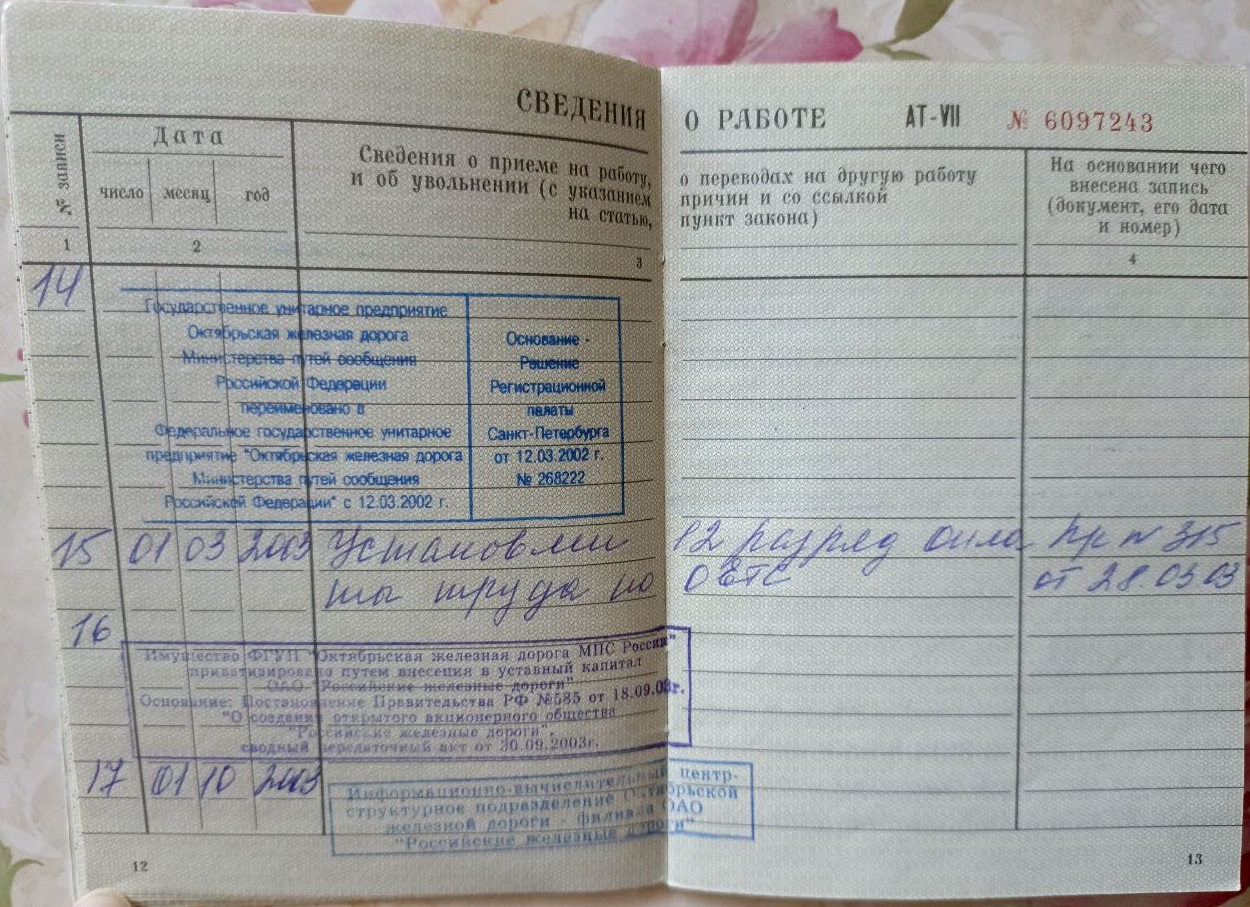 СВЕДЕНИЯ О РАБОТЕ АТ-VII № 6097243
№ записи
Дата
число месяц год
Сведения о приеме на работу,
и об увольнении (с указанием
на статью,
о переводах на другую работу
причин и со ссылкой
пункт закона)
На основании чего
внесена запись
(документ, его дата
и номер)
1 2 3 4
14
Государственное унитарное предприятие
Октябрьская железная дорога
Министерства путей сообщения
Российской Федерации
переименовано в
Федеральное государственное унитарное
предприятие "Октябрьская железная дорога
Министерства путей сообщения
Российской Федерации" с 12.03.2002 г.
Основание -
Решение
Регистрационной
палаты
Санкт-Петербурга
от 12.03.2002 г.
№ 268222
15 01 03 2003 Установлен 12 разряд опла Пр № 315
ты труда по ОЕТС от 28 03 03
16
Имущество ФГУП "Октябрьская железная дорога МПС России"
приватизировано путем внесения в уставный капитал
ОАО "Российские железные дороги"
Основание: Постановление Правительства РФ №585 от 18.09.03г.
"О создании открытого акционерного общества
"Российские железные дороги",
сводный передаточный акт от 30.09.2003г.
17 01 10 2003
Информационно-вычислительный центр-
структурное подразделение Октябрьской
железной дороги - филиала ОАО
"Российские железные дороги"
12
13